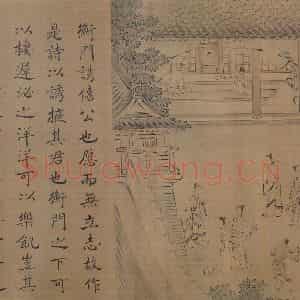 衡門誘僖公也愿而無立志故作
是詩以誘掖其君也衡門之下可
以棲遲泌之洋洋可以樂飢豈其
Shufawang.CN